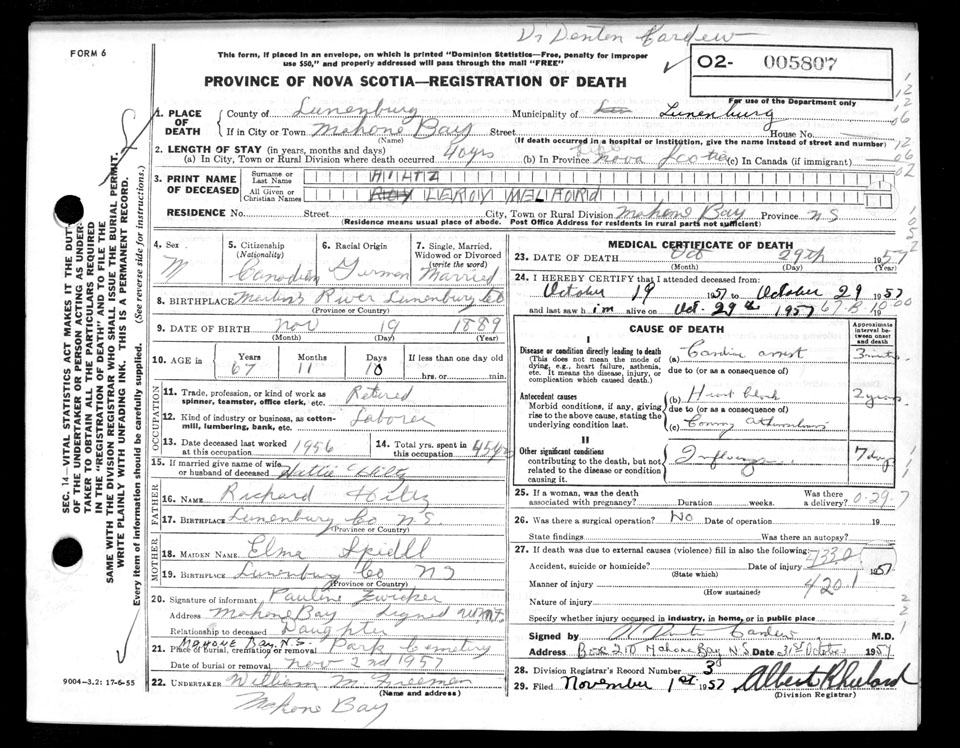 Dr Denton Cardew
FORM 6
This form, if placed in an envelope, on which is printed "Dominion Statistics—Free, penalty for improper
use $50," and properly addressed will pass through the mail "FREE"
PROVINCE OF NOVA SCOTIA—REGISTRATION OF DEATH
02- 005807
For use of the Department only
1. PLACE OF DEATH
County of Lunenburg Municipality of Lunenburg
If in City or Town Mahone Bay Street House No.
(Name) (If death occurred in a hospital or institution, give the name instead of street and number)
2. LENGTH OF STAY (in years, months and days)
(a) In City, Town or Rural Division where death occurred 40 yrs (b) In Province Life Nova Scotia (c) In Canada (if immigrant)
3. PRINT NAME OF DECEASED
Surname or Last Name HILTZ
All Given or Christian Names LEROY MELFORD
RESIDENCE No. Street City, Town or Rural Division Mahone Bay Province NS
(Residence means usual place of abode. Post Office Address for residents in rural parts not sufficient)
4. Sex M
5. Citizenship (Nationality) Canadian
6. Racial Origin German
7. Single, Married, Widowed or Divorced (write the word) Married
8. BIRTHPLACE Martins River Lunenburg Co
(Province or Country)
9. DATE OF BIRTH Nov 19 1889
(Month) (Day) (Year)
10. AGE in Years 67 Months 11 Days 10 If less than one day old
hrs. or min.
OCCUPATION
11. Trade, profession, or kind of work as spinner, teamster, office clerk, etc. Retired
12. Kind of industry or business, as cotton-mill, lumbering, bank, etc. Laborer
13. Date deceased last worked at this occupation 1956
14. Total yrs. spent in this occupation 45 yrs
15. If married give name of wife or husband of deceased Hattie Hiltz
FATHER
16. NAME Richard Hiltz
17. BIRTHPLACE Lunenburg Co N.S.
(Province or Country)
MOTHER
18. MAIDEN NAME Elma Spidell
19. BIRTHPLACE Lunenburg Co NS
(Province or Country)
20. Signature of informant Pauline Zwicker
Address Mahone Bay
Relationship to deceased Daughter
21. Place of burial, cremation or removal MAHONE BAY, N.S. Park Cemetery
Date of burial or removal Nov 2nd 1957
22. UNDERTAKER William M. Freeman
(Name and address)
Mahone Bay
9004-3.2: 17-6-55
MEDICAL CERTIFICATE OF DEATH
23. DATE OF DEATH Oct 29th 1957
(Month) (Day) (Year)
24. I HEREBY CERTIFY that I attended deceased from:
October 19 1957 to October 29 1957
and last saw him alive on Oct. 29th 1957
CAUSE OF DEATH
Approximate interval between onset and death
I
Disease or condition directly leading to death (a) Cardiac arrest 3 minutes
(This does not mean the mode of dying, e.g., heart failure, asthenia, etc. It means the disease, injury, or complication which caused death.)
due to (or as a consequence of)
Antecedent causes (b) Heart block 2 years
Morbid conditions, if any, giving rise to the above cause, stating the underlying condition last
due to (or as a consequence of)
(c) Coronary
II
Other significant conditions Influenza 7 days
contributing to the death, but not related to the disease or condition causing it.
25. If a woman, was the death associated with pregnancy? Duration weeks. Was there a delivery?
26. Was there a surgical operation? No Date of operation 19
State findings Was there an autopsy?
27. If death was due to external causes (violence) fill in also the following:
Accident, suicide or homicide? Date of injury 1957
(State which)
Manner of injury 420.1
(How sustained)
Nature of injury
Specify whether injury occurred in industry, in home, or in public place
Signed by Denton Cardew M.D.
Address Box 210 Mahone Bay N.S. Date 31st October 1957
28. Division Registrar's Record Number 38
29. Filed November 1st 1957
(Division Registrar)
SEC. 14—VITAL STATISTICS ACT MAKES IT THE DUTY
OF THE UNDERTAKER OR PERSON ACTING AS UNDER-
TAKER TO OBTAIN ALL THE PARTICULARS REQUIRED
IN THE "REGISTRATION OF DEATH" AND TO FILE THE
SAME WITH THE DIVISION REGISTRAR WHO SHALL ISSUE THE BURIAL PERMIT.
WRITE PLAINLY WITH UNFADING INK. THIS IS A PERMANENT RECORD.
Every item of information should be carefully supplied. (See reverse side for instructions.)